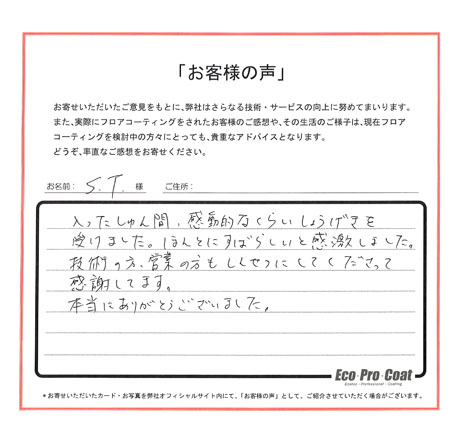 「お客様の声」
お寄せいただいたご意見をもとに、弊社はさらなる技術・サービスの向上に努めてまいります。
また、実際にフロアコーティングをされたお客様のご感想や、その生活のご様子は、現在フロア
コーティングを検討中の方々にとっても、貴重なアドバイスとなります。
どうぞ、率直なご感想をお寄せください。
お名前： S.T. 様 ご住所：
入ったしゅん間、感動的なくらいしょうげきを
受けました。ほんとにすばらしいと感激しました。
技術の方、営業の方もしんせつにしてくださって
感謝してます。
本当にありがとうございました。
Eco・Pro・Coat
Ecolor・Professional・Coating
＊お寄せいただいたカード・お写真を弊社オフィシャルサイト内にて、「お客様の声」として、ご紹介させていただく場合がございます。